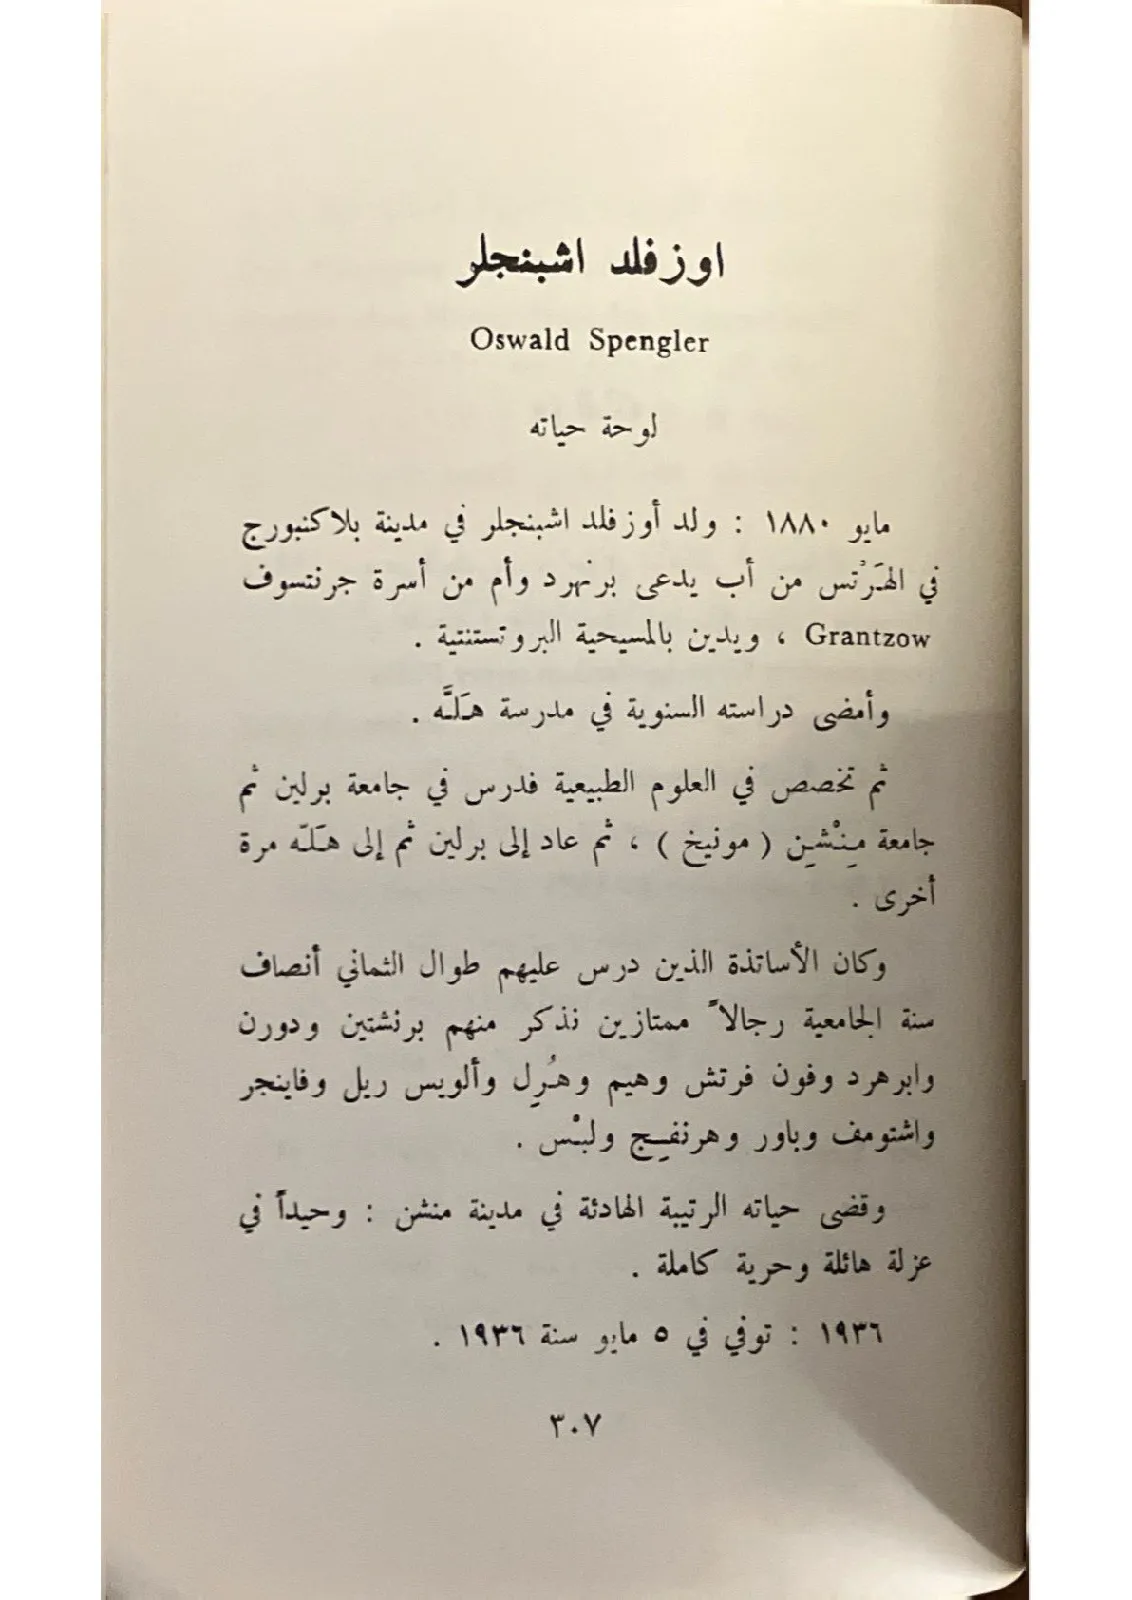 اوزفلد اشبنجلر
Oswald Spengler
لوحة حياته
مايو ١٨٨٠ : ولد أوزفلد اشبنجلر في مدينة بلاكنبورج
في الهَرْتس من أب يدعى برنهرد وأم من أسرة جرنتسوف
Grantzow ، ويدين بالمسيحية البروتستنتية .
وأمضى دراسته السنوية في مدرسة هَلَّه .
ثم تخصص في العلوم الطبيعية فدرس في جامعة برلين ثم
جامعة مِنْشِن ( مونيخ ) ، ثم عاد إلى برلين ثم إلى هَلّه مرة
أخرى .
وكان الأساتذة الذين درس عليهم طوال الثماني أنصاف
سنة الجامعية رجالاً ممتازين نذكر منهم برنشتين ودورن
وابرهرد وفون فرتش وهيم وهُرِل وألويس ريل وفاينجر
واشتومف وباور وهرنفيج ولبْس .
وقضى حياته الرتيبة الهادئة في مدينة منشن : وحيداً في
عزلة هائلة وحرية كاملة .
١٩٣٦ : توفي في ٥ مايو سنة ١٩٣٦ .
٣٠٧